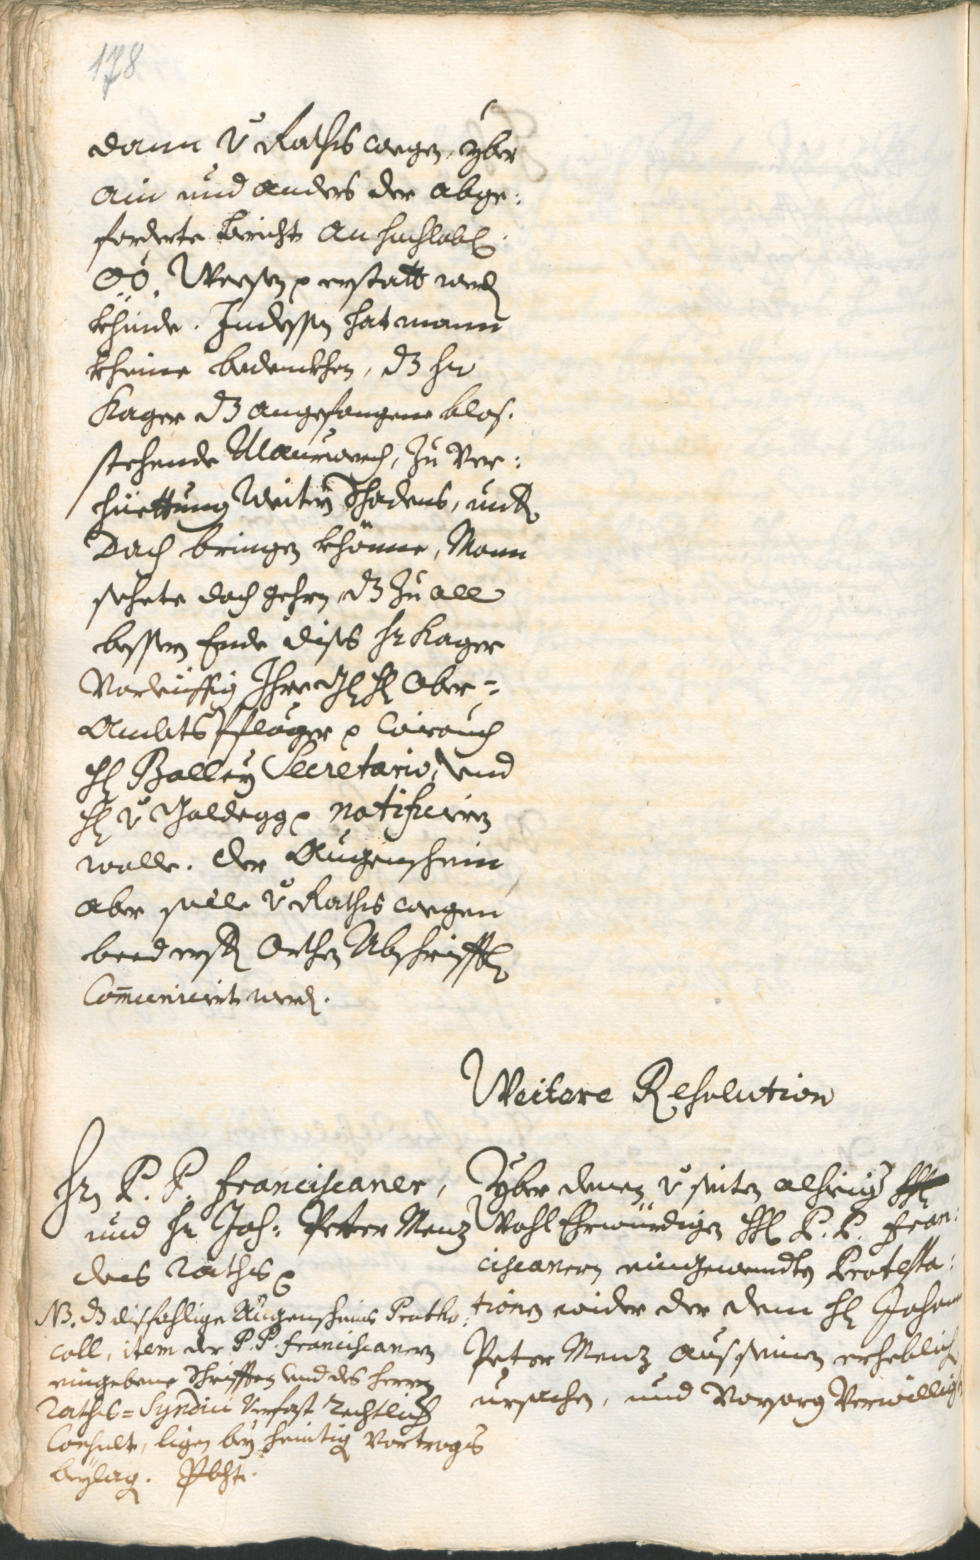 178
dann v Raths wegen, yber
ain und anders der abge:
forderte bericht an hochlobl:
OÖ. Weesen p erstatt werd
khinde. Indessen hat mann
kheine bedenckhen, dz hr
Kager dz angefangene blos.
stehende Maurwerch, zu Ver:
hüettung weitern Schadens, unter
Dach bringen khönne, Mann
sehete doch gehrn dz zu all
bessern Ende dises hr Kager
Vorleüffig Ihro Hl Ober-
Ambts Pfleger p wie auch
Hl Balleÿ Secretario, und
Hl v Goldegg p notificiern
wolle. der Augenschein
aber solle v Raths wegen
beed ersten Orthen Abschrifftl
Communiciert werd.
Weitere Resolution
Hrn P. P. Franciscaner,
und hr Joh: Peter Menz
des Raths
NB. dz disfahlige Augenscheins Protho:
coll, item der P. P. Franciscanern
eingebene Schrifften und des herrn
Raths-Syndici Verfast Rechtlich
Consult, ligen beÿ heintig Vortrags
beylag.
Yber denen v seiten alhieig
Wohl Ehrwürdigen HH P. P. Fran:
ciscanern eingewendten Protesta:
tionen wider der dem Hl Johann
Peter Menz aus seinen erheblich
ursachen, und Vorsorg Verwillig